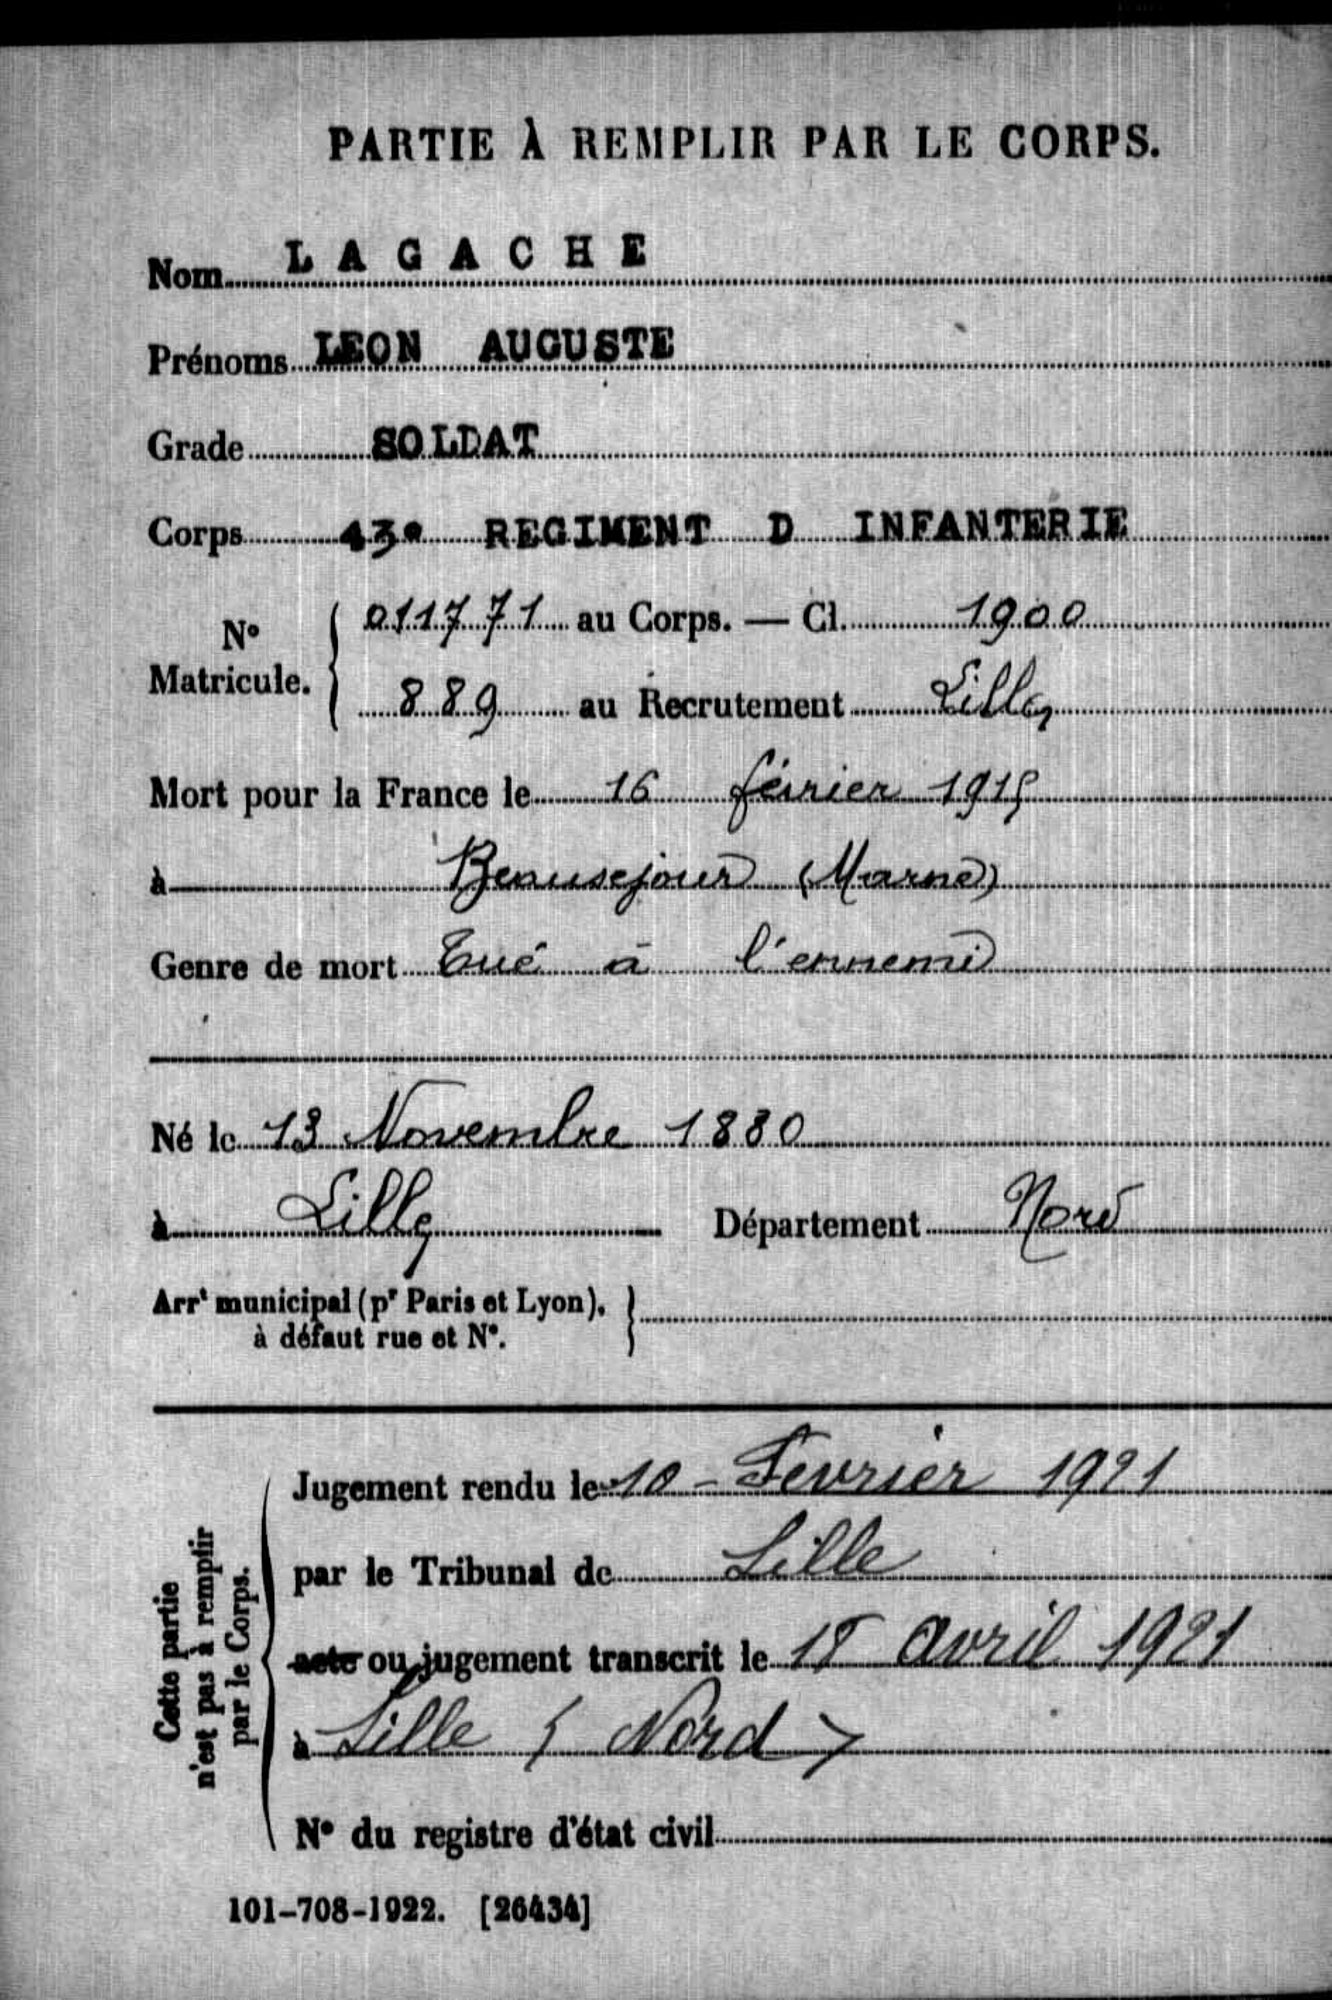 PARTIE À REMPLIR PAR LE CORPS.
Nom LAGACHE
Prénoms LEON AUGUSTE
Grade SOLDAT
Corps 43e REGIMENT D INFANTERIE
N° Matricule. 011771 au Corps. — Cl. 1900
889 au Recrutement Lille
Mort pour la France le 16 février 1915
à Beausejour (Marne)
Genre de mort Tué à l'ennemi
Né le 13 Novembre 1880
à Lille Département Nord
Arrt municipal (pr Paris et Lyon),
à défaut rue et N°.
Cette partie
n'est pas à remplir
par le Corps.
Jugement rendu le 10 - Fevrier 1921
par le Tribunal de Lille
acte ou jugement transcrit le avril 1921
à Lille (Nord)
N° du registre d'état civil
101-708-1922. [26434]